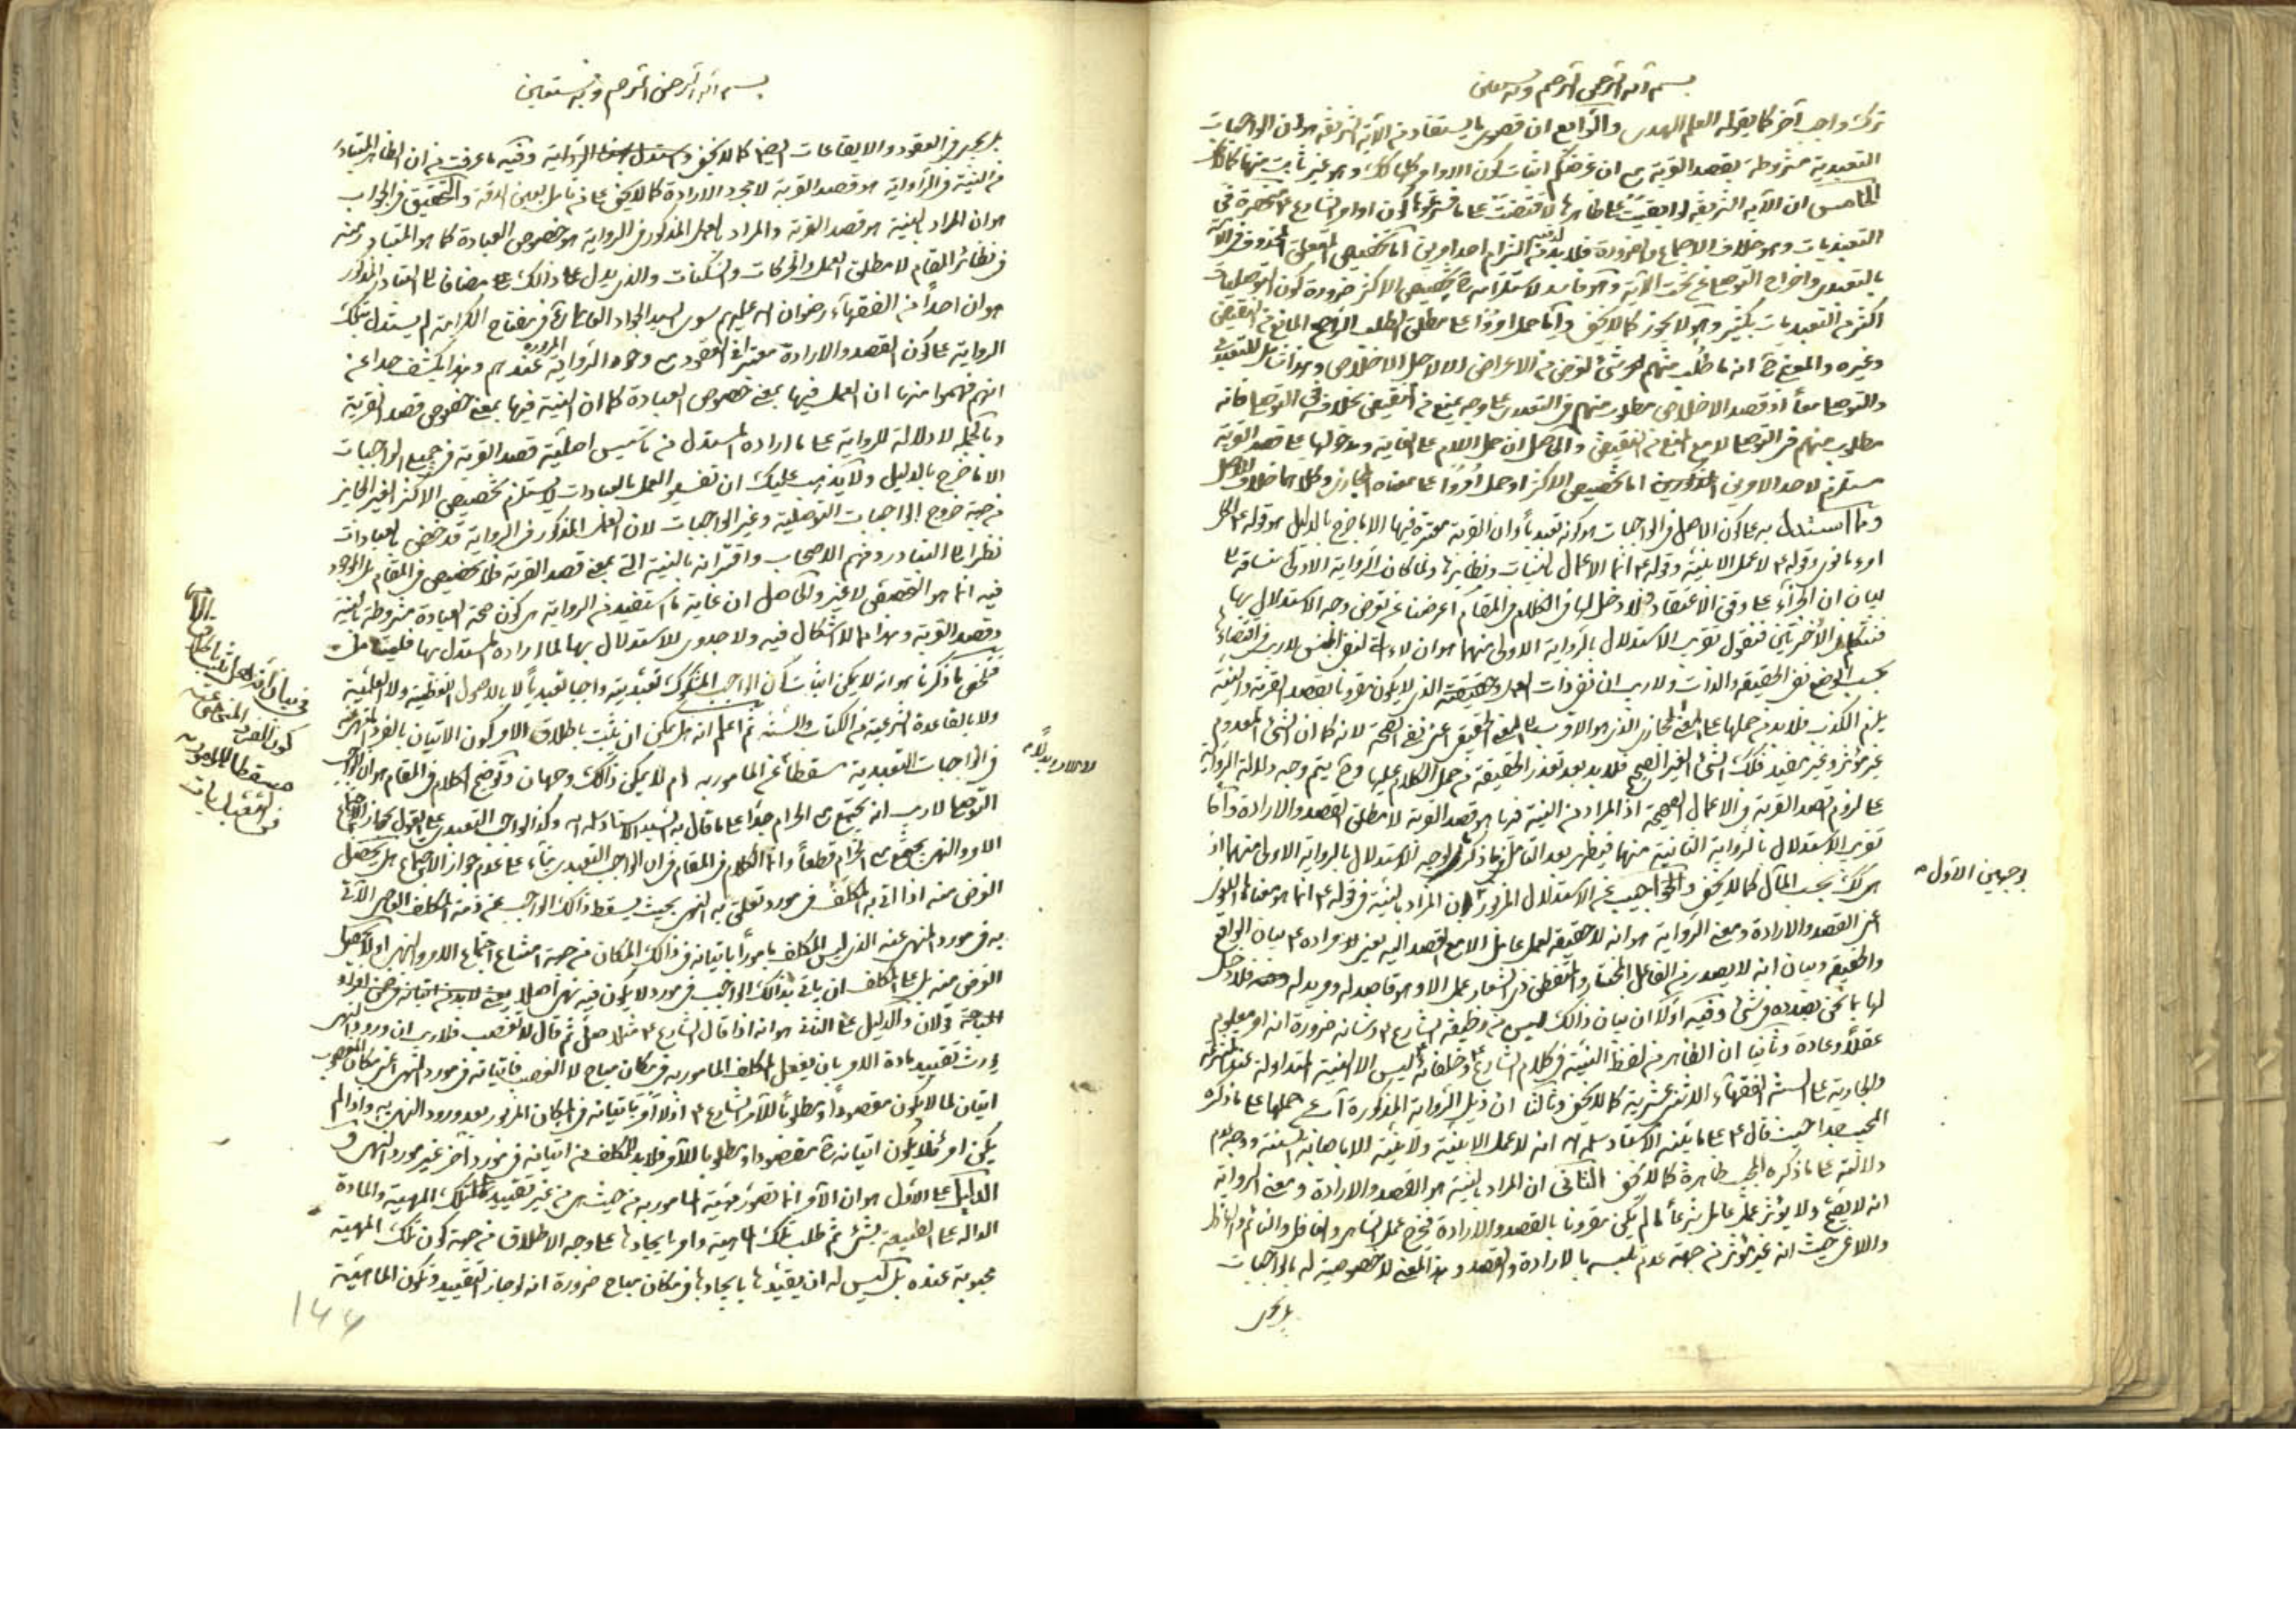 بسم الله الرحمن الرحيم وبه نستعين
ترك واجب آخر كما يقوله العلم الهدى والرابع ان قصوى ما يستفاد من الآية الشريفة هو ان الواجبات
التعبدية مشروطة بقصد القربة مع ان غرضكم اثبات كون الاوامر كلها كك وهو غير ثابت منها كما لا
الخامس ان الآية الشريفة لو ابقيت على ظاهرها لاقتضت على ما كون اوامر الشارع منحصرة في
التعبديات وهو خلاف الاجماع والضرورة فلا بد من التزام احد امرين اما تخصيص المتعلق المحذوف في الآية
بالتعبدى واخراج التوصلى عن تحت الآية وهو فاسد لاستلزامه ح تخصيص الاكثر ضرورة كون التوصليات
اكثر من التعبديات بكثير وهو لا يجوز كما لا يخفى واما حمل اومروا على مطلق الطلب الراجح المانع من النقيض
وغيره والمعنى ح انه ما طلب منهم شىء لغرض من الاغراض الا لاجل الاخلاص وهو شامل للتعبدى
والتوصلى معا اذ قصد الاخلاص مطلوب منهم فى التعبدى على وجه يمنع من النقيض بخلافه فى التوصلى فانه
مطلوب منهم فى التوصلى لا مع المنع من النقيض والحاصل ان حمل اللام على الغاية ومدخولها على قصد القربة
مستلزم لاحد الامرين المذكورين اما تخصيص الاكثر او حمل اومروا على معناه المجازى وكلاهما خلاف الاصل
ومما استدل به على كون الاصل فى الواجبات هو كونه تعبديا وان القربة معتبرة فيها الا ما خرج بالدليل هو قوله ع لكل
امرء ما نوى وقوله ع لا عمل الا بنية وقوله ع انما الاعمال بالنيات ونظايرها ولما كان الرواية الاولى مساقة
لبيان ان الجزاء على وفق الاعتقاد فلا دخل لها فى الكلام فى المقام اعرضنا عن تعرض وجه الاستدلال بها
فنتكلم الأخرتين فنقول تقرير الاستدلال بالرواية الاولى منهما هو ان لاء لنفى الجنس لا ريب فى اقتضاءها
بحسب الوضع نفى الحقيقة والذات ولا ريب ان نفى ذات العمل وحقيقته الذى لا يكون مقرونا بقصد القربة والنية
يلزم الكذب فلا بد من حملها على المعنى المجازى الذى هو الاقرب الى المعنى الحقيقى اعنى نفى الصحة لانه كما ان الشىء المعدوم
غير مؤثر وغير مفيد فكك الشىء الغير الصحيح فلا بد بعد تعذر الحقيقة من حمل الكلام عليها وح يتم وجه دلالة الرواية
على لزوم قصد القربة فى الاعمال الصحيحة اذ المراد من النية فيها هو قصد القربة لا مطلق القصد والارادة واما
تقرير الاستدلال بالرواية الثانية منهما فيظهر بعد التامل فيما ذكر لوجه الاستدلال بالرواية الاولى منهما اذ
هى كك بحسب المآل كما لا يخفى والجواب عن الاستدلال المزبور ان المراد بالنية فى قوله ع انما هو معناها اللغوى
اعنى القصد والارادة ومعنى الرواية هو انه لا حقيقة لعمل عامل الا مع القصد اليه يعنى لا مراده ع بيان الواقع
والحقيقة وبيان انه لا يصدر من الفاعل المختار عمل الا وهو قاصد له ومريد له فلا دخل
لها بما نحن بصدده فى شىء وفيه اولا ان بيان ذلك ليس من وظيفة الشارع ع وشانه ضرورة انه امر معلوم
عقلا وعادة وثانيا ان الظاهر من لفظ النية فى كلام الشارع ع وخلفائه ليس الا النية المتداولة عند المتشرعة
والجارية على السنة الفقهاء الاثنى عشرية كما لا يخفى وثالثا ان ذيل الرواية المذكورة آب عن حملها على ما ذكره
المجيب جدا حيث قال ع على ما بينه الاستاد سلمه الله انه لا عمل الا بنية ولا نية الا باصابة السنة ووجه عدم
دلالته على ما ذكره المجيب ظاهرة كما لا يخفى الثانى ان المراد بالنية هو القصد والارادة ومعنى الرواية
انه لا يصح ولا يؤثر عمل عامل شرعا ما لم يكن مقرونا بالقصد والارادة فيخرج عمل الساهى والغافل والنائم
واللاعب حيث انه غير مؤثر من جهة عدم تلبسه بالارادة والقصد وهذا المعنى لا خصوصية له بالواجبات
بل يجرى
بوجهين الاول
بسم الله الرحمن الرحيم وبه نستعين
بل يجرى فى العقود والايقاعات ايضا كما لا يخفى الرواية وفيه ما عرفت من ان الظاهر المتبادر
من النية فى الرواية هو قصد القربة لا مجرد الارادة كما لا يخفى على من تامل بعين الدقة والتحقيق فى الجواب
هو ان المراد بالنية هو قصد القربة والمراد بالعمل المذكور فى الرواية هو خصوص العبادة كما هو المتبادر منه
فى نظائر المقام لا مطلق العمل والحركات والسكنات والذى يدل على ذلك مضافا الى التبادر المذكور
هو ان احدا من الفقهاء رضوان الله عليهم سوى السيد الجواد العاملى فى مفتاح الكرامة لم يستدل بتلك
الرواية على كون القصد والارادة معتبرا فى العقود مع وجود الرواية المزبورة عندهم وهذا يكشف جدا عن
انهم فهموا منها ان العمل فيها بمعنى خصوص العبادة كما ان النية فيها بمعنى خصوص قصد القربة
وبالجملة لا دلالة للرواية على ما اراده المستدل من تاسيس اصلية قصد القربة فى جميع الواجبات
الا ما خرج بالدليل ولا يذهب عليك ان تفسير العمل بالعبادات لا يستلزم تخصيص الاكثر الغير الجايز
من جهة خروج الواجبات التوصلية وغير الواجبات لان العمل المذكور فى الرواية قد خص بالعبادات
نظرا الى التبادر وفهم الاصحاب واقترانه بالنية التى بمعنى قصد القربة فلا تخصيص فى المقام بل الموجود
فيه انما هو التخصص لا غير والحاصل ان غاية ما استفيد من الرواية هى كون صحة العبادة مشروطة بالنية
وقصد القربة وهذا مما لا اشكال فيه ولا جدوى للاستدلال بها لما اراده المستدل بها فليتامل
فتلخص مما ذكرنا هو انه لا يمكن اثبات كون الواجب المشكوك تعبديته واجبا تعبديا لا بالاصول اللفظية ولا العملية
ولا بالقاعدة الشرعية من الكتاب والسنة ثم اعلم انه هل يمكن ان يثبت باطلاق الامر كون الاتيان بالفرد المنهى عنه
فى الواجبات التعبدية مسقطا عن المامور به ام لا يمكن ذلك وجهان وتوضيح الكلام فى المقام هو ان الواجب
التوصلى لا ريب انه يجتمع مع الحرام جدا على ما قال به السيد الاستاد سلمه الله وكذا الواجب التعبدى على القول بجواز اجتماع
الامر والنهى يجتمع مع الحرام قطعا وانما الكلام فى المقام فى ان الواجب التعبدى بناء على عدم جواز الاجتماع هل يحصل
الغرض منه اذا اتى به المكلف فى مورد تعلق به النهى بحيث يسقط ذلك الواجب عن ذمة المكلف العاصى الآتى
به فى مورد المنهى عنه الذى ليس المكلف مامورا باتيانه فى ذلك المكان من جهة امتناع اجتماع الامر والنهى او لا يحصل
الغرض منه بل على المكلف ان ياتى بذلك الواجب فى مورد لا يكون فيه نهى اصلا يعنى لا بد من اتيانه فى ضمن افراد
المباحة قولان والدليل على الثانى هو انه اذا قال الشارع ع مثلا صل ثم قال لا تغصب فلا ريب ان ورود النهى
يورث تقييد مادة الامر بان يفعل المكلف المامور به فى مكان مباح لا الغصب فاتيانه فى مورد النهى اعنى مكان المغصوب
اتيان لما لا يكون مقصودا ومطلوبا للآمر الشارع ع اذ لا امر باتيانه فى المكان المزبور بعد ورود النهى به واذا لم
يكن امر فلا يكون اتيانه ح مقصودا ومطلوبا للآمر فلا بد للمكلف من اتيانه فى مورد آخر غير مورد النهى و
الدليل على الاول هو ان الآمر انما تصور مهية المامور به من حيث هى من غير تقييد لتلك المهية والمادة
الدالة على الطبيعة بشىء ثم طلب تلك الماهية وامر بايجادها على وجه الاطلاق من جهة كون تلك المهية
محبوبة عنده بل ليس له ان يقيدها بايجادها فى مكان مباح ضرورة انه لو جاز التقييد وتكون الماهية
فى بيان انه هل يثبت باطلاق الامر
كون الفرد المنهى عنه
مسقطا للمامور به
فى التعبديات